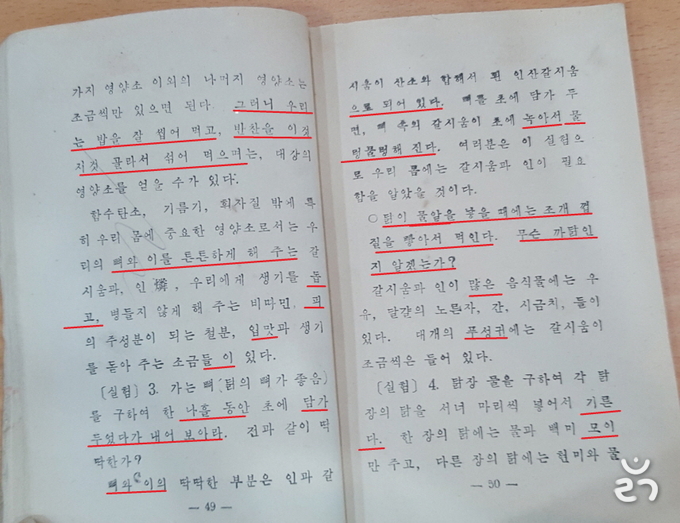 가지 영양소 이외의 나머지 영양소는
조금씩만 있으면 된다. 그러니 우리
는 밥을 잘 씹어 먹고, 반찬을 이것
저것 골라서 섞어 먹으며는, 대강의
영양소를 얻을 수가 있다.
함수탄소, 기름기, 흰자질 밖에 특
히 우리 몸에 중요한 영양소로서는 우
리의 뼈와 이를 튼튼하게 해 주는 갈
시움과, 인燐, 우리에게 생기를 돕
고, 병들지 않게 해 주는 비타민, 피
의 주성분이 되는 철분, 입맛과 생기
를 돋아 주는 소금들 이 있다.
[실험] 3. 가는 뼈(닭의 뼈가 좋음)
를 구하여 한 나흘 동안 초에 담가
두었다가 내어 보아라. 전과 같이 딱
딱한가?
뼈와 이의 딱딱한 부분은 인과 갈
— 49 —
시움이 산소와 합해서 된 인산갈시움
으로 되어 있다. 뼈를 초에 담가 두
면, 뼈 속의 갈시움이 초에 녹아서 물
렁물렁해 진다. 여러분은 이 실험으
로 우리 몸에는 갈시움과 인이 필요
함을 알았을 것이다.
○닭이 물알을 낳을 때에는 조개 껍
질을 빻아서 먹인다. 무슨 까닭인
지 알겠는가?
갈시움과 인이 많은 음식물에는 우
유, 달걀의 노른자, 간, 시금치, 들이
있다. 대개의 푸성귀에는 갈시움이
조금씩은 들어 있다.
[실험] 4. 닭장 둘을 구하여 각 닭
장의 닭을 서너 마리씩 넣어서 기른
다. 한 장의 닭에는 물과 백미 모이
만 주고, 다른 장의 닭에는 현미와 물
— 50 —